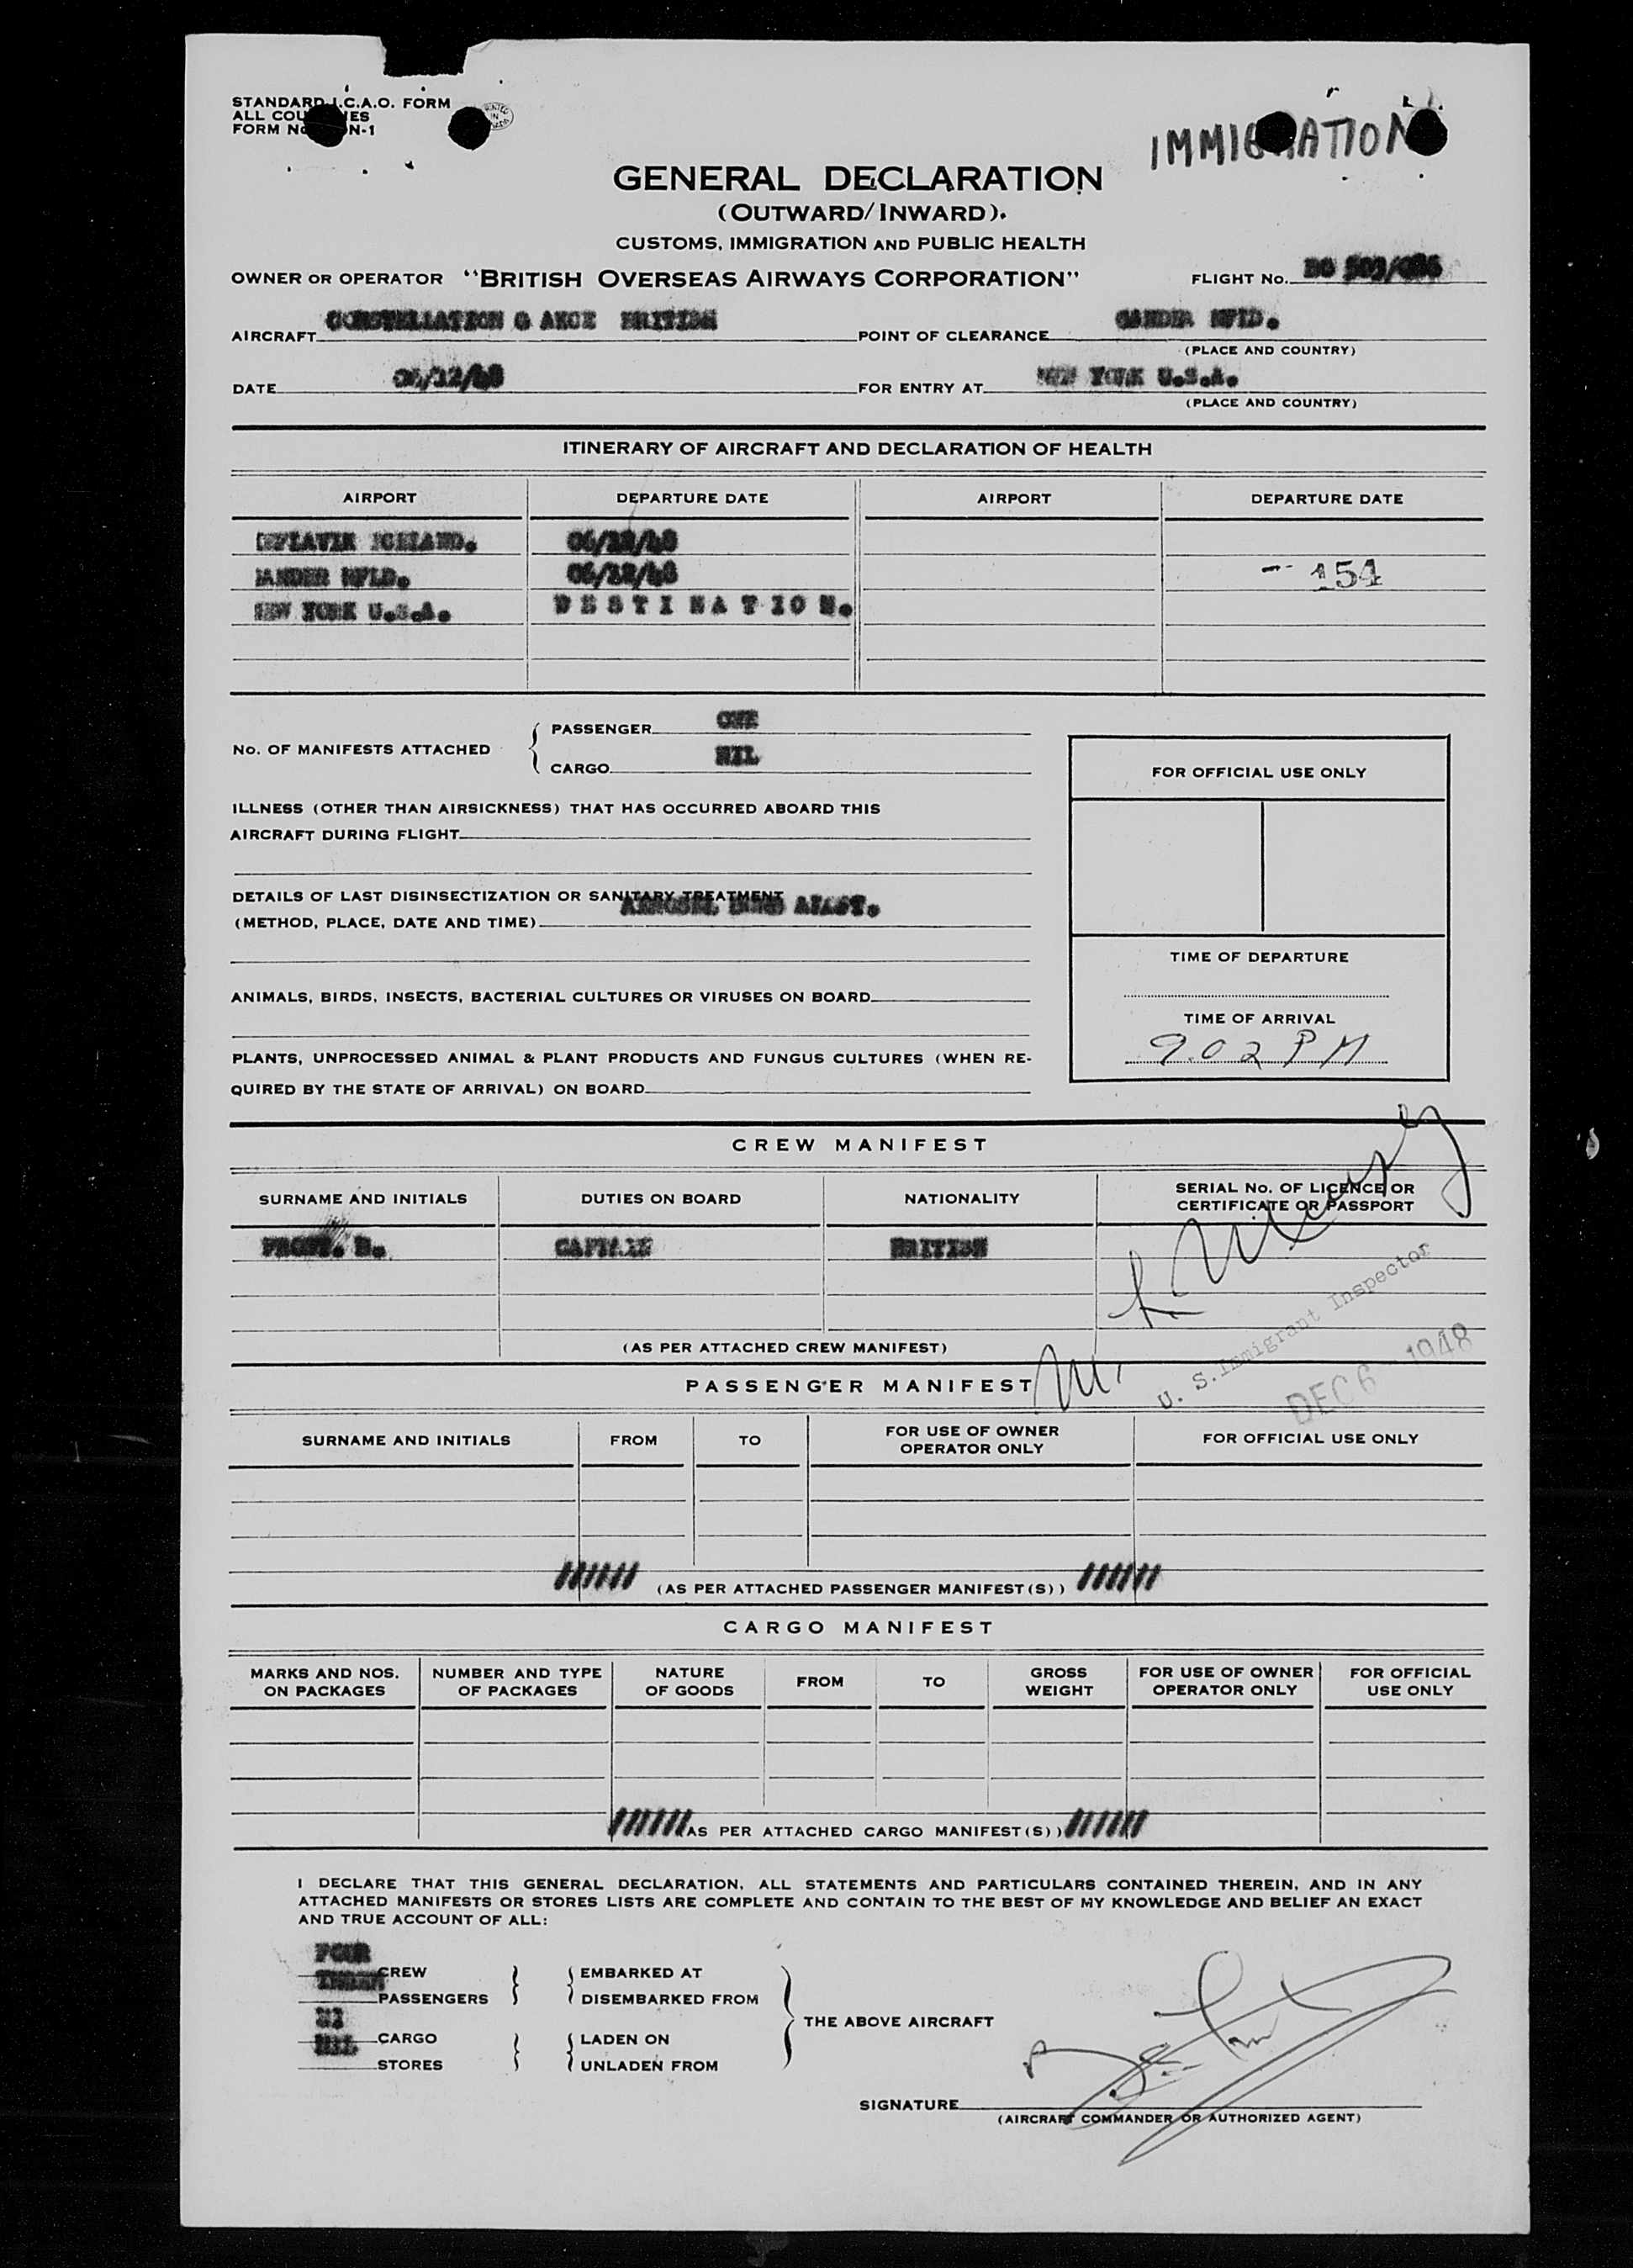 STANDARD I.C.A.O. FORM
ALL COUNTRIES
FORM No. N-1
IMMIGRATION
GENERAL DECLARATION
(OUTWARD/INWARD).
CUSTOMS, IMMIGRATION AND PUBLIC HEALTH
OWNER OR OPERATOR "BRITISH OVERSEAS AIRWAYS CORPORATION" FLIGHT No. BO
AIRCRAFT CONSTELLATION G BRITISH POINT OF CLEARANCE GANDER NFLD.
(PLACE AND COUNTRY)
DATE 06/12/48 FOR ENTRY AT NEW YORK U.S.A.
(PLACE AND COUNTRY)
ITINERARY OF AIRCRAFT AND DECLARATION OF HEALTH
AIRPORT DEPARTURE DATE AIRPORT DEPARTURE DATE
KEFLAVIK ICELAND. 06/12/48
GANDER NFLD. 06/12/48 154
NEW YORK U.S.A. DESTINATION.
PASSENGER ONE
No. OF MANIFESTS ATTACHED
CARGO NIL
FOR OFFICIAL USE ONLY
ILLNESS (OTHER THAN AIRSICKNESS) THAT HAS OCCURRED ABOARD THIS
AIRCRAFT DURING FLIGHT
DETAILS OF LAST DISINSECTIZATION OR SANITARY TREATMENT
(METHOD, PLACE, DATE AND TIME) AEROSOL
TIME OF DEPARTURE
ANIMALS, BIRDS, INSECTS, BACTERIAL CULTURES OR VIRUSES ON BOARD
TIME OF ARRIVAL
9.02 PM
PLANTS, UNPROCESSED ANIMAL & PLANT PRODUCTS AND FUNGUS CULTURES (WHEN RE-
QUIRED BY THE STATE OF ARRIVAL) ON BOARD
CREW MANIFEST
SURNAME AND INITIALS DUTIES ON BOARD NATIONALITY SERIAL No. OF LICENCE OR
CERTIFICATE OR PASSPORT
FROST. D. CAPTAIN BRITISH
U. S. Immigrant Inspector
(AS PER ATTACHED CREW MANIFEST)
DEC 6 1948
PASSENGER MANIFEST
SURNAME AND INITIALS FROM TO FOR USE OF OWNER
OPERATOR ONLY FOR OFFICIAL USE ONLY
////// (AS PER ATTACHED PASSENGER MANIFEST(S)) //////
CARGO MANIFEST
MARKS AND NOS.
ON PACKAGES NUMBER AND TYPE
OF PACKAGES NATURE
OF GOODS FROM TO GROSS
WEIGHT FOR USE OF OWNER
OPERATOR ONLY FOR OFFICIAL
USE ONLY
////// AS PER ATTACHED CARGO MANIFEST(S)) //////
I DECLARE THAT THIS GENERAL DECLARATION, ALL STATEMENTS AND PARTICULARS CONTAINED THEREIN, AND IN ANY
ATTACHED MANIFESTS OR STORES LISTS ARE COMPLETE AND CONTAIN TO THE BEST OF MY KNOWLEDGE AND BELIEF AN EXACT
AND TRUE ACCOUNT OF ALL:
FOUR
CREW EMBARKED AT
PASSENGERS DISEMBARKED FROM
THE ABOVE AIRCRAFT
NIL CARGO LADEN ON
STORES UNLADEN FROM
SIGNATURE
(AIRCRAFT COMMANDER OR AUTHORIZED AGENT)